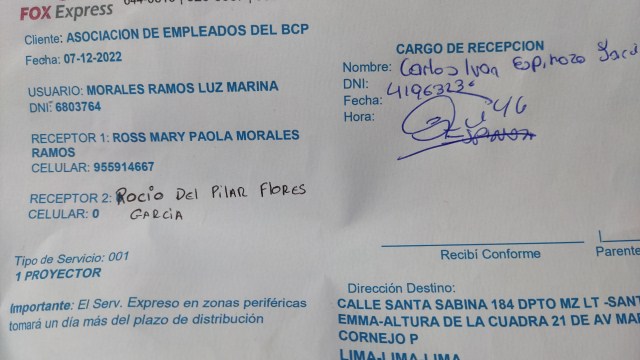 FOX Express
Cliente: ASOCIACION DE EMPLEADOS DEL BCP
Fecha: 07-12-2022
USUARIO: MORALES RAMOS LUZ MARINA
DNI: 6803764
RECEPTOR 1: ROSS MARY PAOLA MORALES
RAMOS
CELULAR: 955914667
RECEPTOR 2: Rocio Del Pilar Flores
CELULAR: 0 Garcia
Tipo de Servicio: 001
1 PROYECTOR
Importante: El Serv. Expreso en zonas periféricas
tomará un día más del plazo de distribución
CARGO DE RECEPCION
Nombre: Carlos Ivan Espinoza
DNI: 4196323
Fecha:
Hora:
Recibí Conforme
Parente
Dirección Destino:
CALLE SANTA SABINA 184 DPTO MZ LT -SANT
EMMA-ALTURA DE LA CUADRA 21 DE AV MAR
CORNEJO P
LIMA-LIMA-LIMA